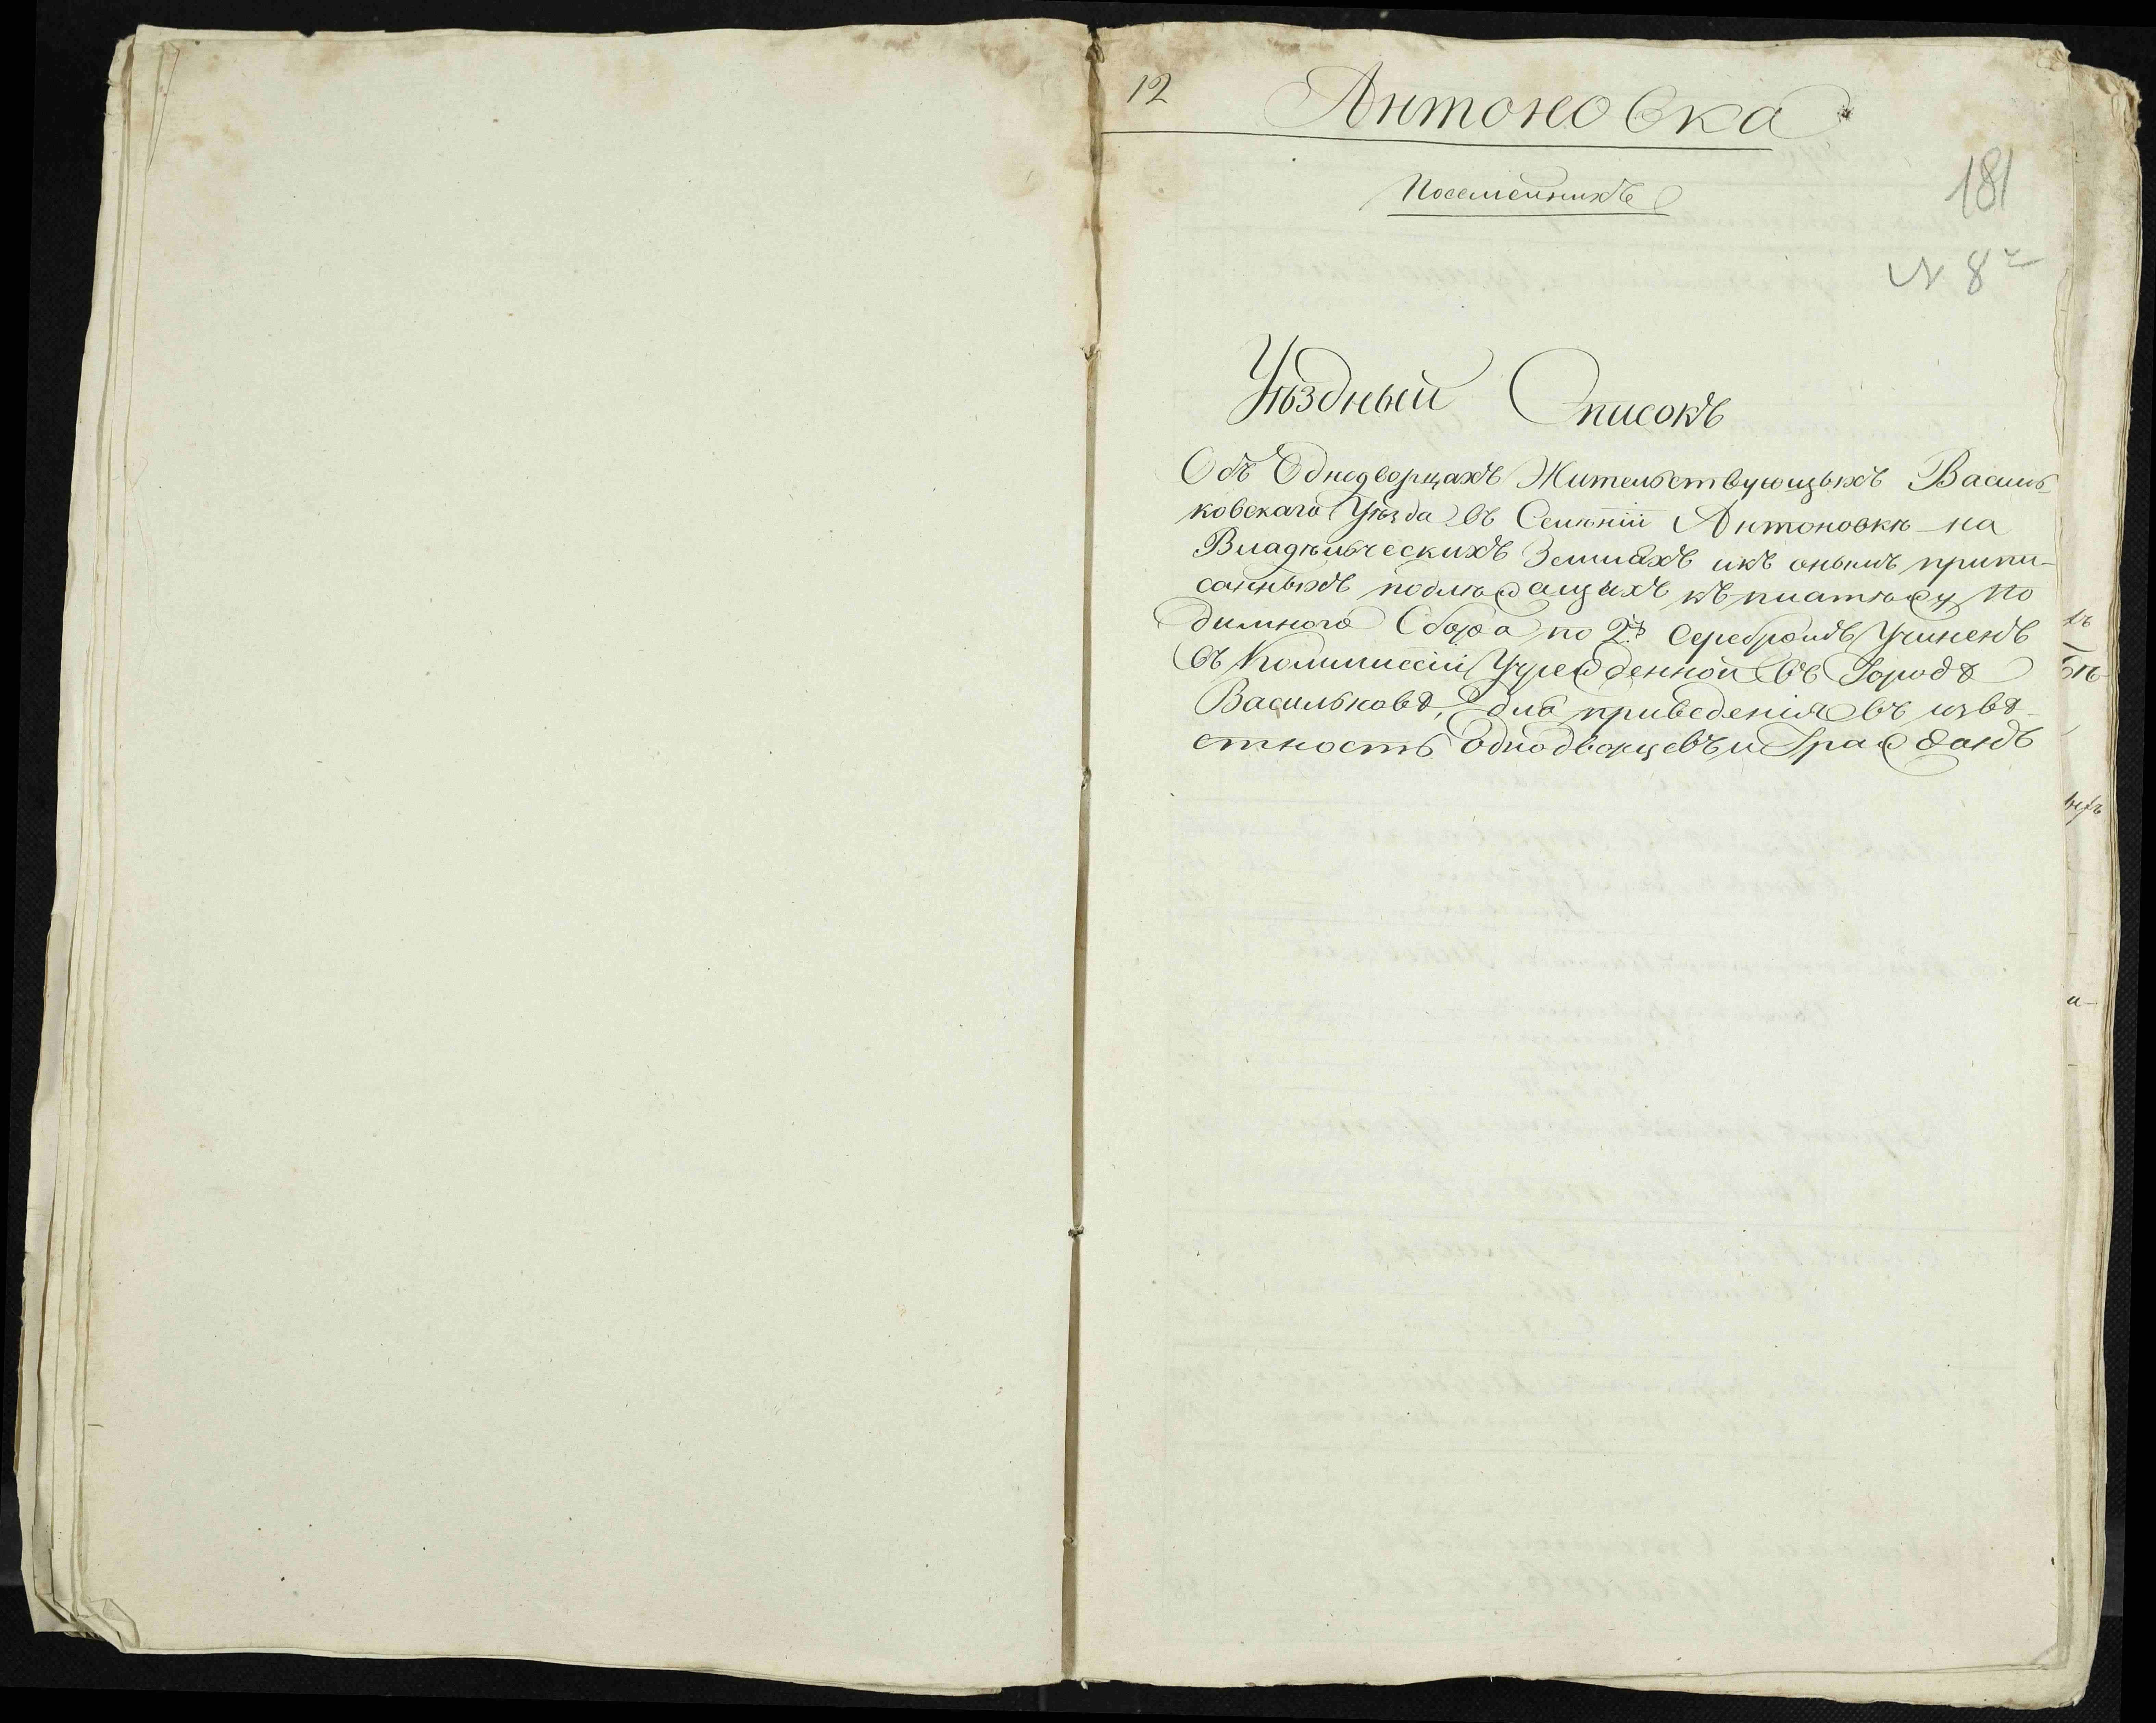 12 Антоновка
Посемейныхъ
181
N 8й
Уѣздный Списокъ
Объ Однодворцахъ Жительствующыхъ Василь-
ковскаго Уѣзда въ Селѣніи Антоновкѣ на
Владѣльческихъ Земляхъ икъ онымъ припи-
санныхъ подлѣжащихъ къ платежу по
дымного Сбора по 2 р Серебромъ Учиненъ
въ Коммиссіи Учрежденной въ Городѣ
Васильковѣ, для приведенія въ извѣ-
стность Однодворцевъ и Гражданъ